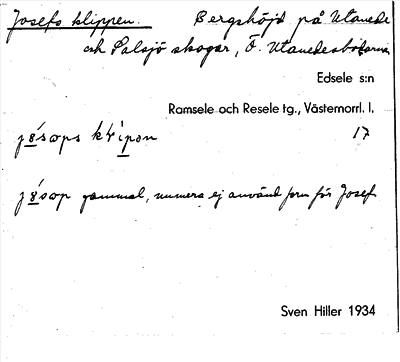 Josefs klippen. Bergshöjd på Utanede
och Palsjö skogar, Ö. Utanedesbödarna
Edsele s:n
Ramsele och Resele tg., Västernorrl. l.
17
gammal, numera ej använd form för Josef
Sven Hiller 1934